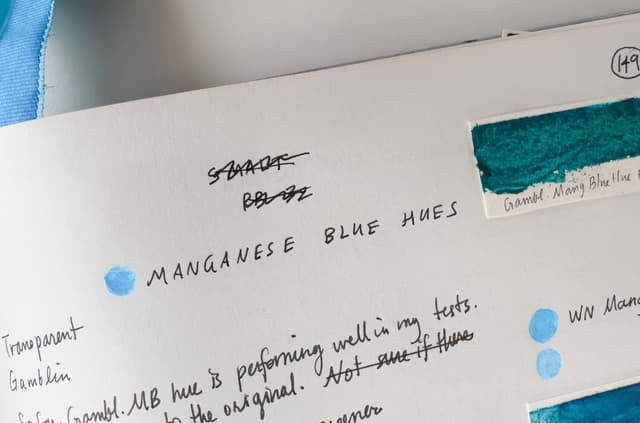 149
Gambl. Mang Blue Hue
MANGANESE BLUE HUES
WN Mang
Transparent
Gamblin
So far Gambl. MB hue is performing well in my tests.
to the original. Not sure if there
greener